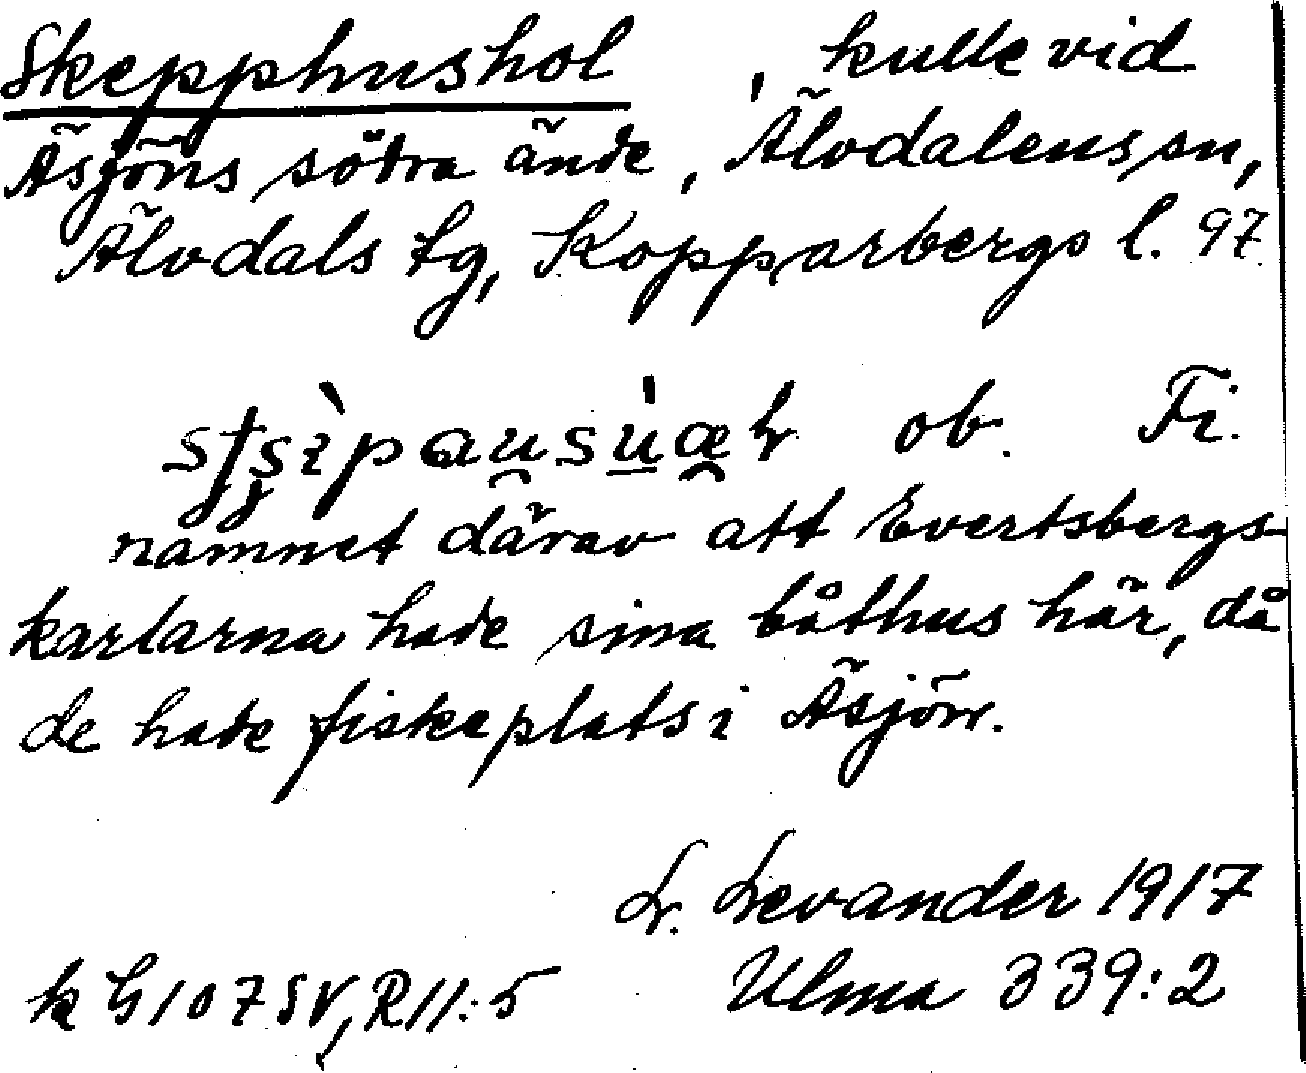 Skepphushol, kulle vid
Äsjöns södra ände, Älvdalens sn,
Älvdals tg, Kopparbergs l. 97
ob. Fi.
namnet därav att Evertsbergs-
karlarna hade sina båthus här, då
de hade fiskeplats i Äsjön.
L. Levander 1917
k G107SV, R11:5 Ulma 339:2